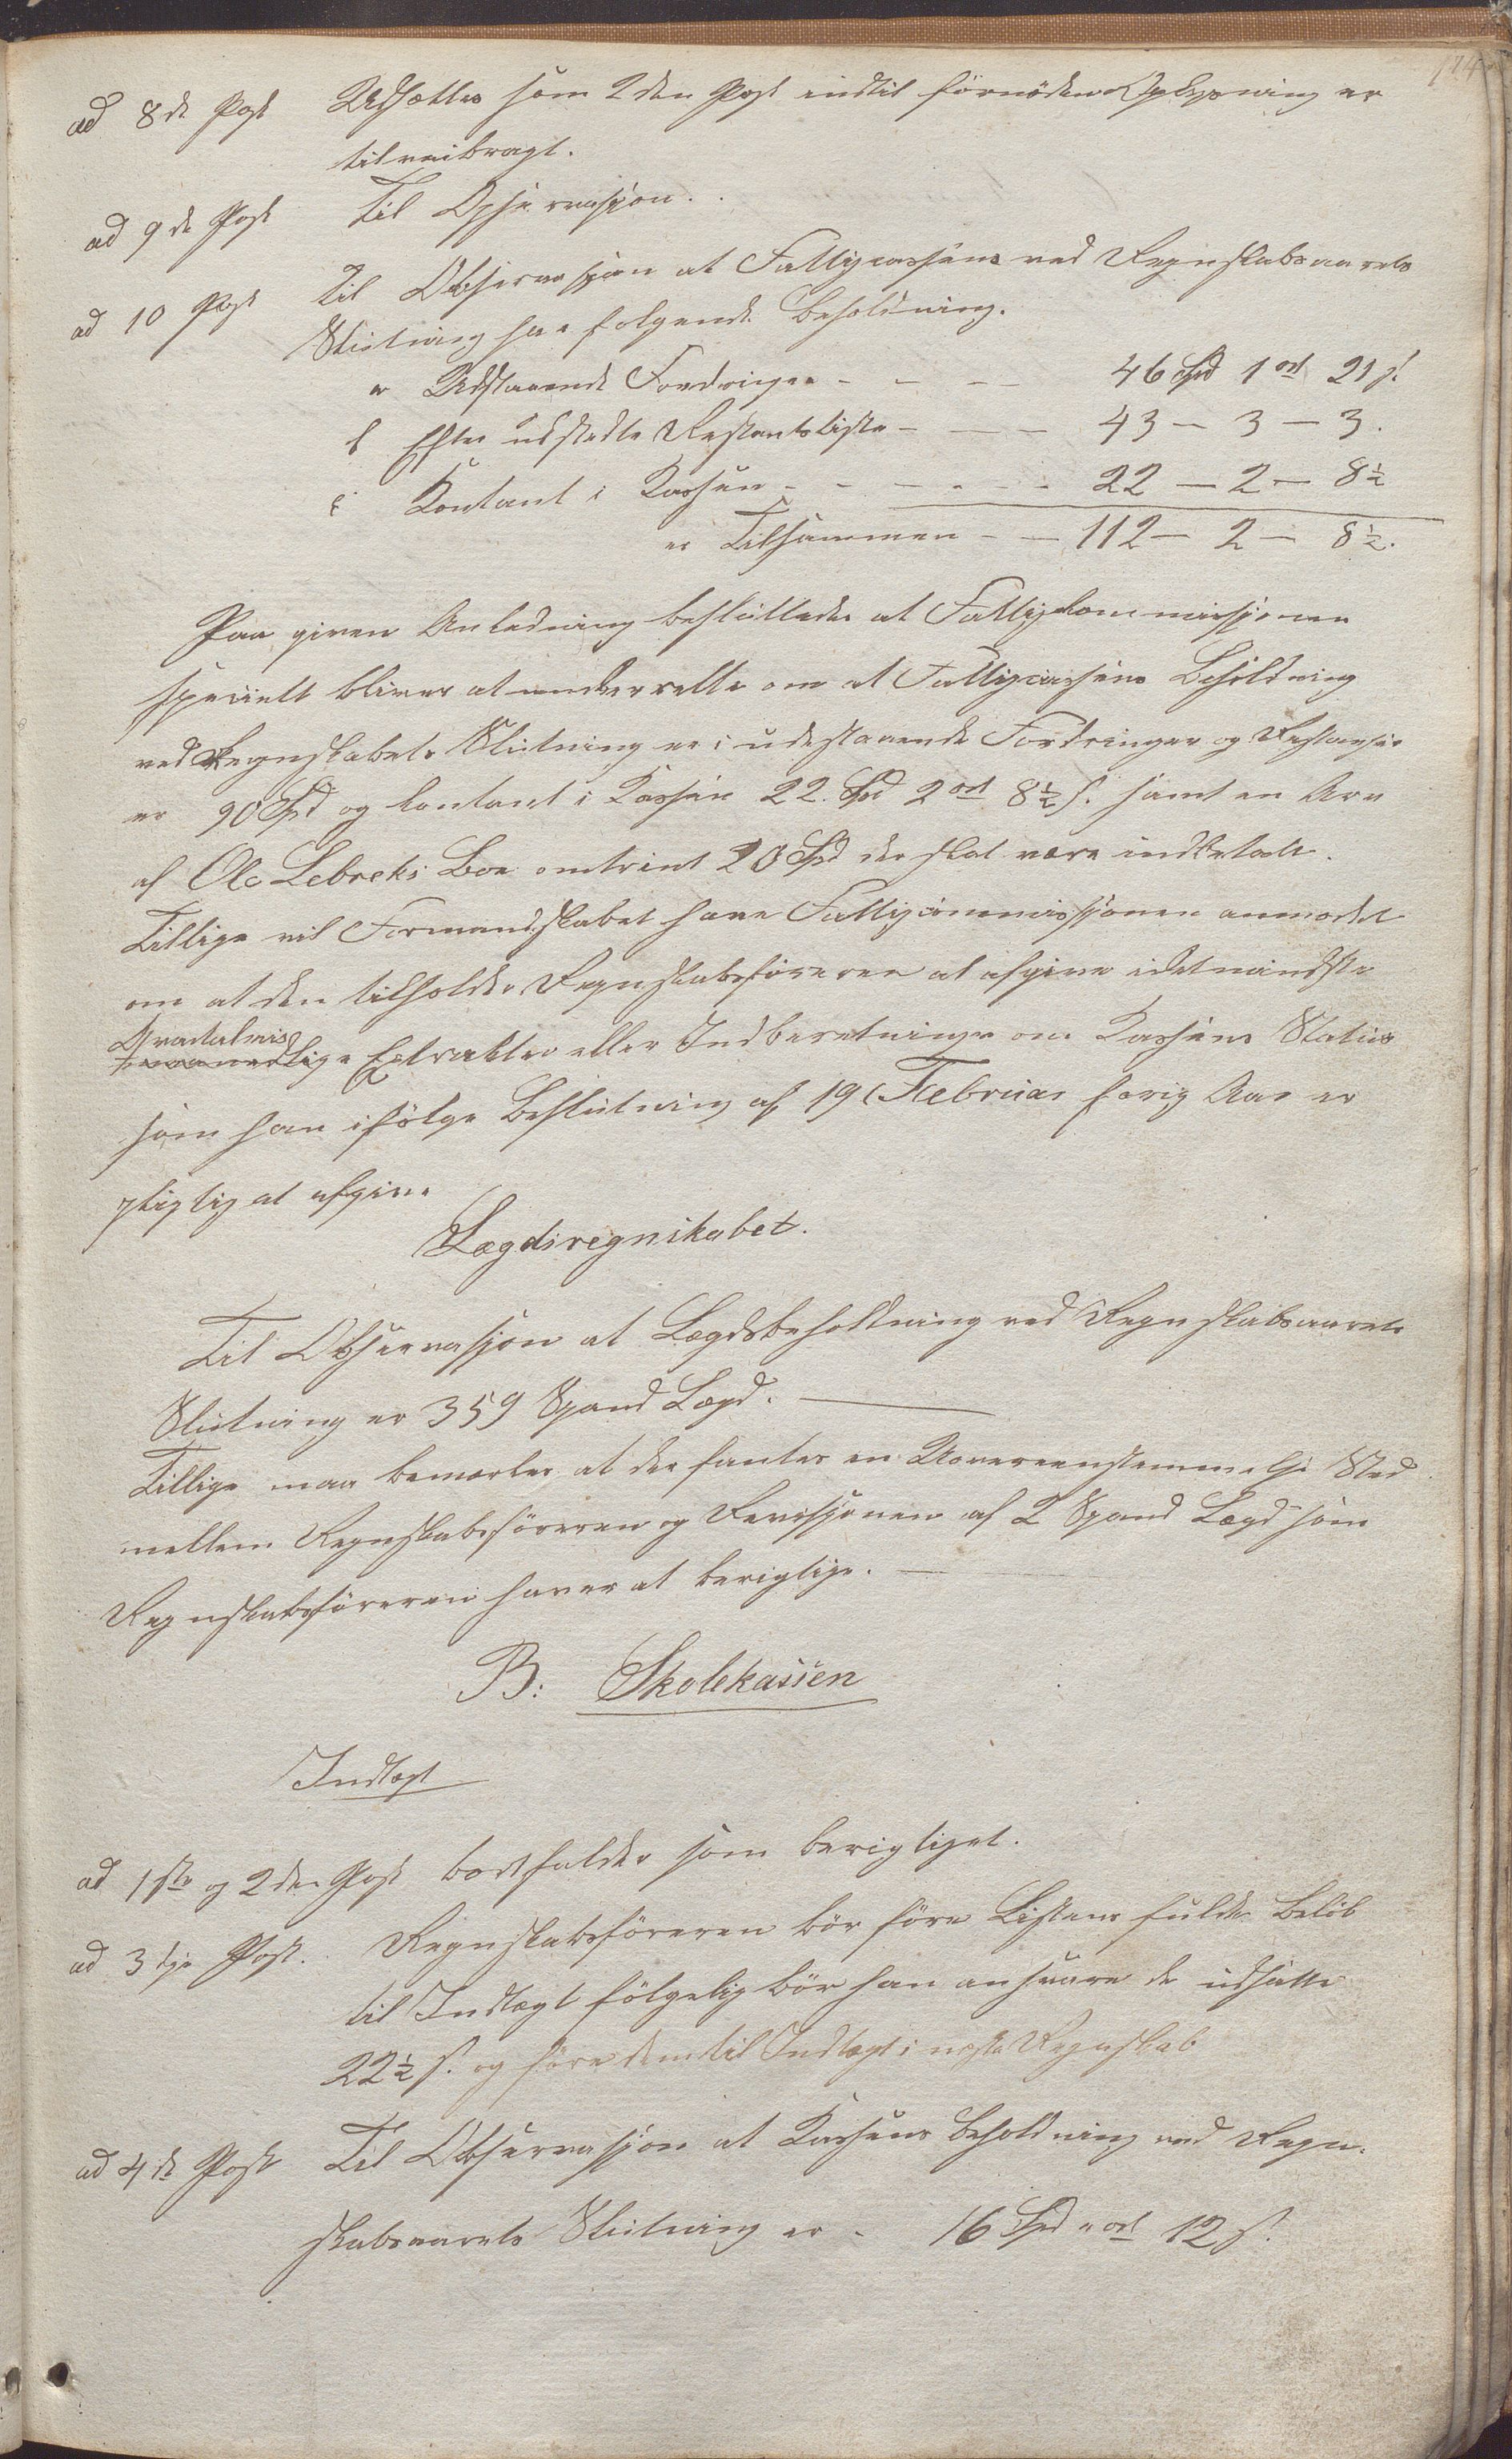 ad 8de Post Udsættes som 2den Post indtil fornöden Oplysning er
tilveibragt.
ad 9de Post Til Opservasjon.
ad 10 Post Til Observasjon at Fattigcassens ved Regnskabsaarets
Slutning har følgende Beholdning.
a Udstaaende Fordringer - - - 46 Spd 1 ort 21 s.
b Efter udstedte Restantsliste - - - 43 - 3 - 3.
c Kontant i Kassen - - - - - 22 - 2 - 8½
er Tilsammen - - 112 - 2 - 8½.
Paa given Anledning besluttedes at Fattigkommissjonen
specielt bliver at underrette om at Fattigcassens Beholdning
ved Regnskabets Slutning er i udestaaende Fordringer og Restanser
er 90 Spd og Contant i Kassen 22 Spd 2 ort 8½ s. samt en Arv
af Ole Lebreks Boe omtrint 20 Spd der skal være indbetalt.
Tillige vil Formandskabet have Fattigcommissjonen anmodet
om at den tilholder Regnskabsföreren at afgive idetmindste
Qvartalvis
maanedlige Extrakter eller Indberetninger om Kassens Status
som han ifölge Beslutning af 19 Februar forrig Aar er
pligtig at afgive
Lægdsregnskabet.
Til Observasjon at Lægdsbeholdning ved Regnskabsaarets
Slutning er 359 Spand Lægd.
Tillige maa bemærkes at der fantes en Uovereenstemmelse Sted
mellem Regnskabsföreren og Revissjonen af 2 Spand Lægd som
Regnskabsföreren haver at berigtige.
B: Skolekassen
Indtægt
ad 1ste og 2den Post bortfalder som berigtiget.
ad 3die Post. Regnskabsföreren bör före Listens fulde Belöb
til Indtægt fölgelig bör han ansvare de udsatte
22½ s. og före dem til Indtægt i næste Regnskab
ad 4de Post Til Observasjon at Kassens Beholdning ved Regn-
skabsaarets Slutning er - 16 Spd " ort 12 s.